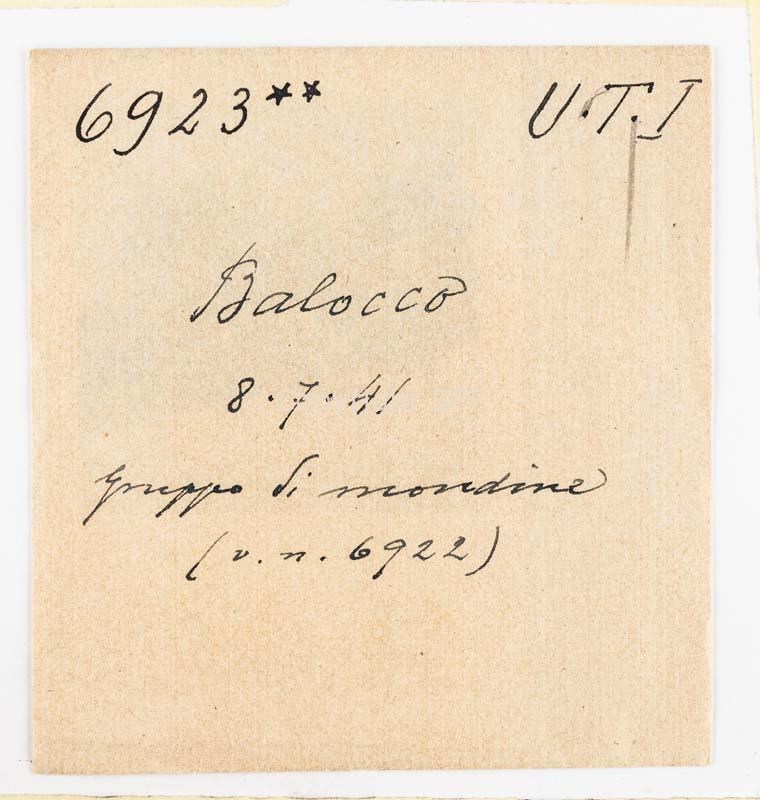 6923** U.T.I
Balocco
8.7.41
Gruppo di mondine
(v.n. 6922)